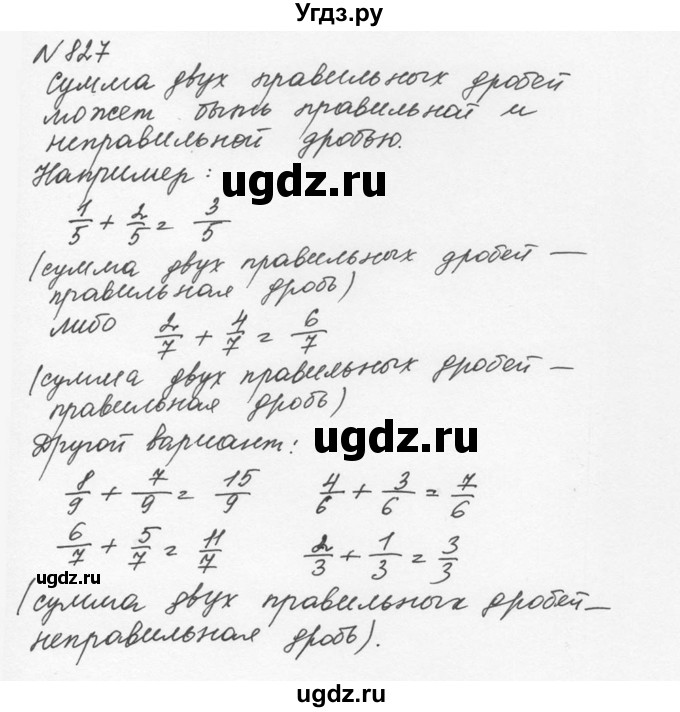 Угдз.ру
№ 827
Сумма двух правильных дробей
может быть правильной и
неправильной дробью.
Например:
ugdz.ru
1/5 + 2/5 = 3/5
(сумма двух правильных дробей —
правильная дробь)
либо 2/7 + 4/7 = 6/7
(сумма двух правильных дробей —
правильная дробь)
Другой вариант:
ugdz.ru
8/9 + 7/9 = 15/9 4/6 + 3/6 = 7/6
6/7 + 5/7 = 11/7 2/3 + 1/3 = 3/3
ugdz.ru
(сумма двух правильных дробей —
неправильная дробь).
ugdz.ru